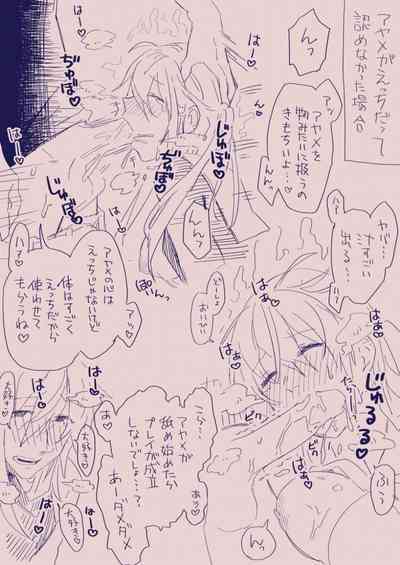 アヤメがえっちだって
認めなかった場合
んっ
はー♡
はー♡
アッ♡
アヤメを
物みたいに扱うの
きもちいよ…♡
んんっ
ん♡
ぢゅぼ♡
じゅぼ
ぢゅぼ
じゅぼ♡
はー♡
はー♡
んんっ
ヤバ…
汗すごい
出る…♡
ハァ♡
はぁ♡
アヤメの心は
えっちじゃないけど
アッ♡
体はすごく
えっちだから
使わせて
もらうね♡
ハァ♡
ぽいんっ
どーしよ
おいひい
はぁ♡
はぁ♡
じゅるる♡
こら…
アヤメが
舐め始めたら
プレイが成立
しないでしょ…?
あーダメダメ
あっ♡
ビク
ビク
はぁ♡
ふぅ
んっ
大好き♡
大好き♡
大好き♡
はー♡
はー♡
はー♡